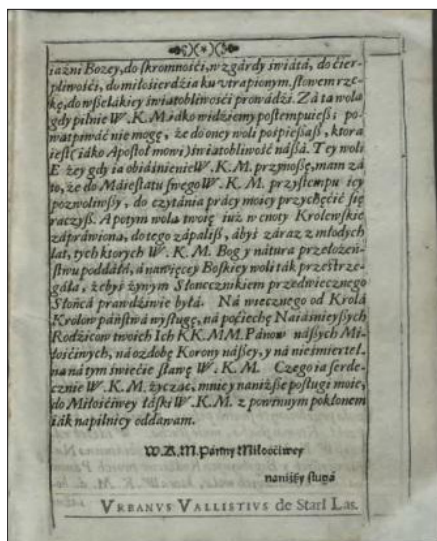 iaźni Bozey, do ſkromnośći, wzgárdy świátá, do ćier-
pliwośći, do miłośierdźia ku vtrapionym. ſłowem rze-
kę, do wßelákiey światobliwośći prowádźi. Zá ta wola
gdy pilnie W. K. M iáko widźiemy poſtempuieß i po-
watpiwáć nie mogę, że do oney woli poſpießaß, ktora
ieſt (iáko Apoſtoł mowi) świátobliwość náßá. Tey woli
E żey gdy ia obiáśnienie W. K. M. przynoßę, mam zá
to, że do Máieſtatu ſwego W. K. M. przyſtempu iey
pozwoliwßy, do czytánia prácy moiey przychęćić ſię
raczyß. A potym wola twoię iuż w cnoty Krolewſkie
zápráwiona, do tego zápaliß, ábyś záraz z młodych
lat, tych ktorych W. K. M. Bog y nátura przełożeń-
ſtwu poddáłá, á nawięcey Boſkiey woli ták przeſtrze-
gáłá, żebyś żynym Słonecznikiem przedwiecznego
Słońcá prawdźiwie byłá. Ná wiecznego od Krolá
Krolow páńſtwá wyſługę, ná poćiechę Naiáśnieyßych
Rodźicow twoich Ich KK. MM. Pánow náßych Mi-
łośćiwych, ná ozdobę Korony náßey, y ná nieśmiertel-
na ná tym świećie ſławę W. K. M. Czego ia ſerde-
cznie W. K. M. życzac, mnie y naniżße poſługi moie,
do Miłośćiwey łáſki W. K. M. z powinnym pokłonem
iák napilniey oddawam.
W. K. M. Pánny Miłośćiwey
naniżßy ſługá
VRBANVS VALLISTIVS de Starl Las.